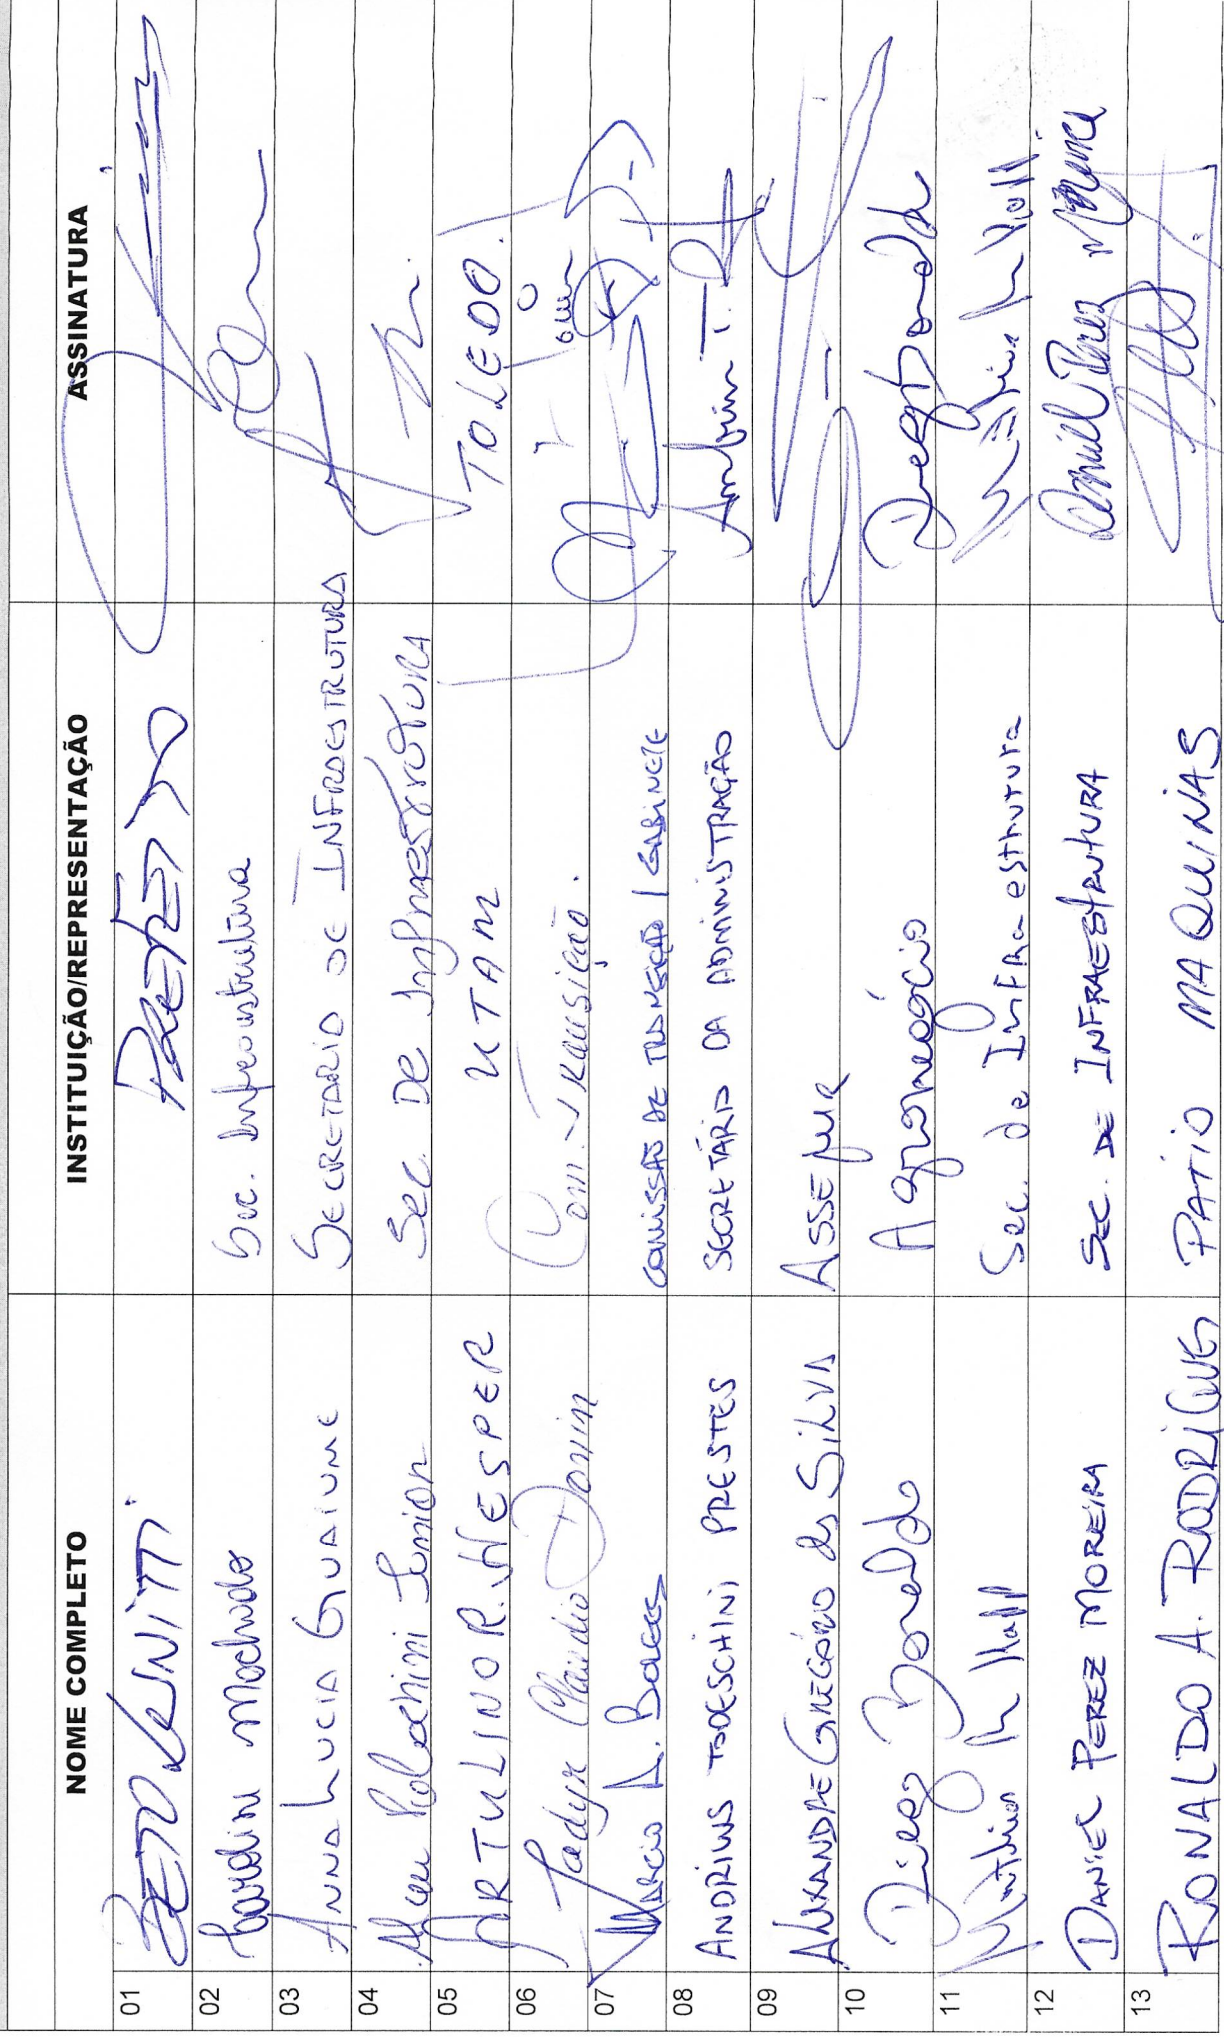 NOME COMPLETO INSTITUIÇÃO/REPRESENTAÇÃO ASSINATURA
01 BETO PREFEITO
02 Machado Sec. Infraestrutura
03 ANNA LUCIA SECRETARIO DE INFRAESTRUTURA
04 Junior Sec. De Infraestrutura
05 ARTULINO R. HESPER UTAM TOLEDO.
06 Claudio Donin Com. Transição.
07 MARCIO A. BORGES COMISSÃO DE TRANSIÇÃO / GABINETE
08 ANDRIUS TODESCHINI PRESTES SECRETÁRIO DA ADMINISTRAÇÃO
09 ALEXANDRE GREGÓRIO da SILVA ASSEMUR
10 Diego Bonaldo Agronegócio Diego Bonaldo
11 Sec. de Infraestrutura
12 DANIEL PEREZ MOREIRA SEC. DE INFRAESTRUTURA Daniel Perez Moreira
13 RONALDO A. RODRIGUES PATIO MAQUINAS